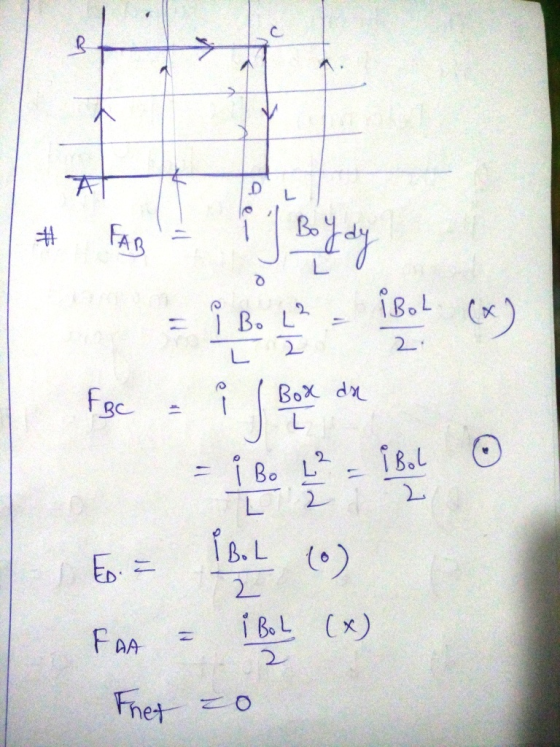 B C
A D
# F_AB = i ∫₀ᴸ B₀y/L dy
= i B₀/L L²/2 = iB₀L/2. (x)
F_BC = i ∫ B₀x/L dx
= i B₀/L L²/2 = iB₀L/2 ⊙
F_CD. = iB₀L/2 (o)
F_AA = iB₀L/2 (x)
F_net = 0